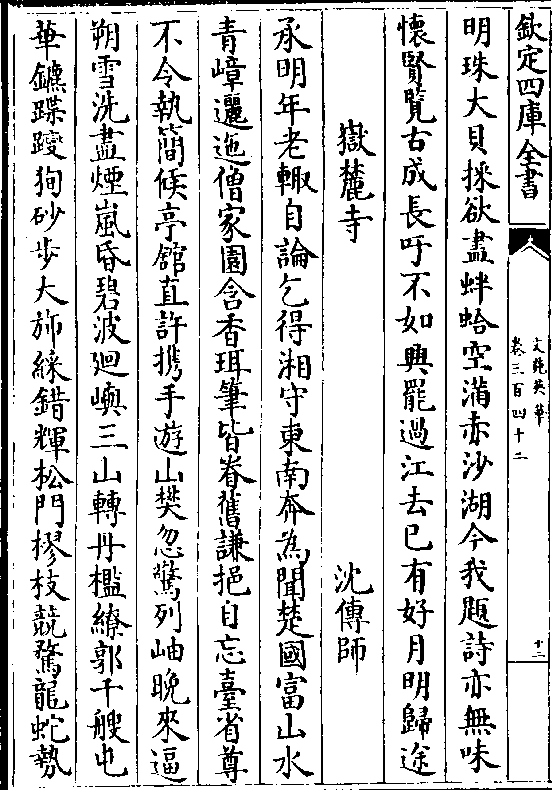 欽定四庫全書
文苑英華
卷三百四十二
十二
明珠大貝採欲盡蚌蛤空滿赤沙湖今我題詩亦無味
懷賢覽古成長吁不如興罷過江去已有好月明歸途
嶽麓寺　沈傳師
承明年老輙自論乞得湘守東南奔為聞楚國富山水
青嶂邐迤僧家園含香珥筆皆眷舊謙挹自忘臺省尊
不令執簡候亭館直許携手遊山樊忽驚列岫晚來逼
朔雪洗盡煙嵐昏碧波廻嶼三山轉丹檻繚郭千艘屯
華鑣蹀躞狥砂步大斾綵錯輝松門樛枝競騖龍蛇勢